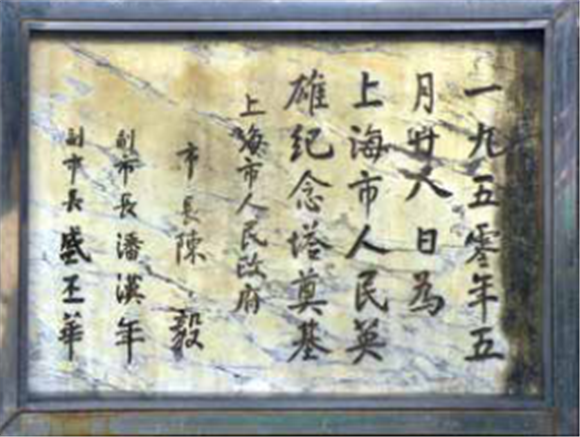 一九五零年五
月廿八日為
上海市人民英
雄纪念塔奠基
上海市人民政府
市長陳毅
副市長潘漢年
副市長盛丕華